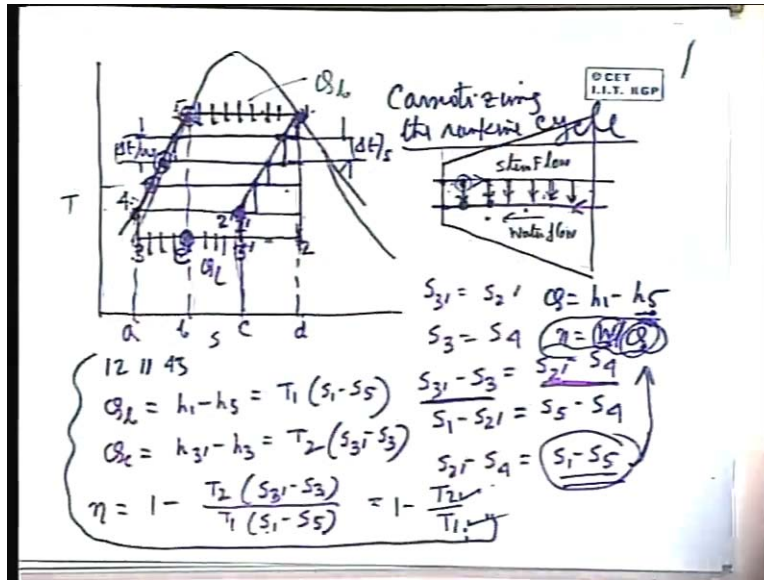 1
© CET
I.I.T. KGP
Carnotizing
the rankine cycle
Stem Flow
Water flow
T
(Δt)w
(Δt)s
5
1
4
2'
3
3'
2
a
b
S
c
d
S3' = S2'
Q = h1 - h5
S3 = S4
η = W/Q
S3' - S3 = S2' - S4
S1 - S2' = S5 - S4
S2' - S4 = S1 - S5
12 11 45
= h1 - h5 = T1 (S1 - S5)
= h3' - h3 = T2 (S3' - S3)
η = 1 - T2 (S3' - S3) / T1 (S1 - S5) = 1 - T2 / T1